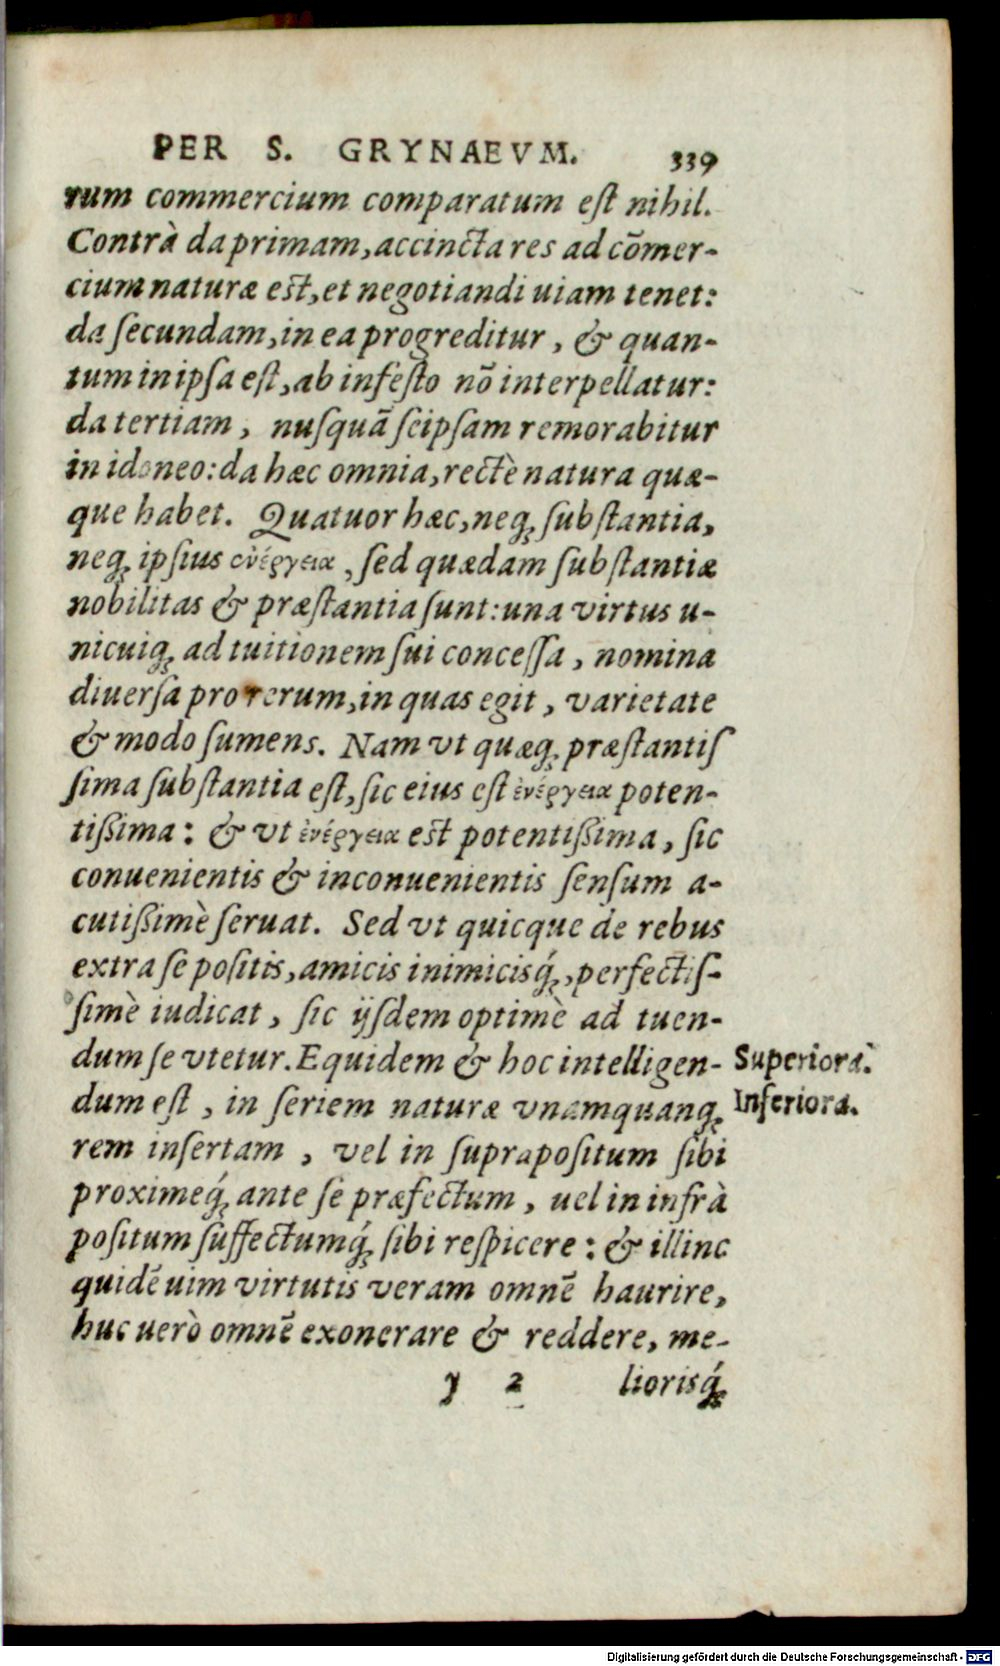 PER S. GRYNAEVM. 339
rum commercium comparatum eſt nihil.
Contrà da primam, accincta res ad cōmer-
cium naturæ eſt, et negotiandi uiam tenet:
da ſecundam, in ea progreditur, & quan-
tum in ipſa eſt, ab infeſto nō interpellatur:
da tertiam, nuſquā ſeipſam remorabitur
in idoneo: da hæc omnia, rectè natura quæ-
que habet. Quatuor hæc, neq; ſubſtantia,
neq; ipſius ἐνέργεια, ſed quædam ſubſtantiæ
nobilitas & præſtantia ſunt: una virtus u-
nicuiq; ad tuitionem ſui conceſſa, nomina
diuerſa pro rerum, in quas egit, varietate
& modo ſumens. Nam vt quæq; præſtantiſ
ſima ſubſtantia eſt, ſic eius eſt ἐνέργεια poten-
tiſsima: & vt ἐνέργεια eſt potentiſsima, ſic
conuenientis & inconuenientis ſenſum a-
cutiſsimè ſeruat. Sed vt quicque de rebus
extra ſe poſitis, amicis inimicisq́;, perfectiſ-
ſimè iudicat, ſic ijſdem optimè ad tuen-
dum ſe vtetur. Equidem & hoc intelligen-
Superiora.
dum eſt, in ſeriem naturæ vnamquanq;
Inferiora.
rem inſertam, vel in ſuprapoſitum ſibi
proximeq́; ante ſe præfectum, uel in infrà
poſitum ſuffectumq́; ſibi reſpicere: & illinc
quidē uim virtutis veram omnē haurire,
huc uerò omnē exonerare & reddere, me-
y 2 liorisq́;
Digitalisierung gefördert durch die Deutsche Forschungsgemeinschaft - DFG